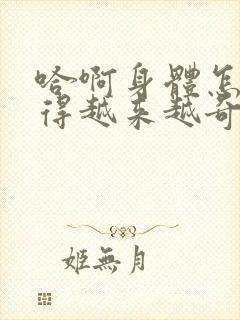 哈啊身體怎
得越来越奇
姬無月